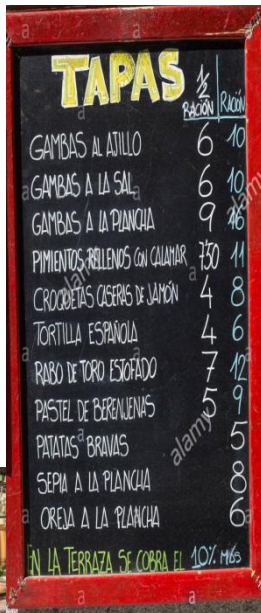 TAPAS ½ RACIÓN RACIÓN
GAMBAS AL AJILLO 6 10
GAMBAS A LA SAL 6 10
GAMBAS A LA PLANCHA 9 16
PIMIENTOS RELLENOS CON CALAMAR 7,50 11
CROQUETAS CASERAS DE JAMÓN 4 8
TORTILLA ESPAÑOLA 4 6
RABO DE TORO ESTOFADO 7 12
PASTEL DE BERENJENAS 5 9
PATATAS BRAVAS 5
SEPIA A LA PLANCHA 8
OREJA A LA PLANCHA 6
EN LA TERRAZA SE COBRA EL 10% MÁS
alamy